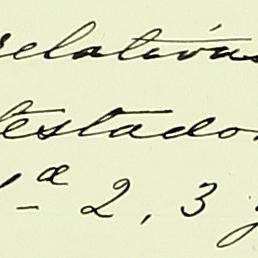 relativas
testador
1ª 2, 3 y